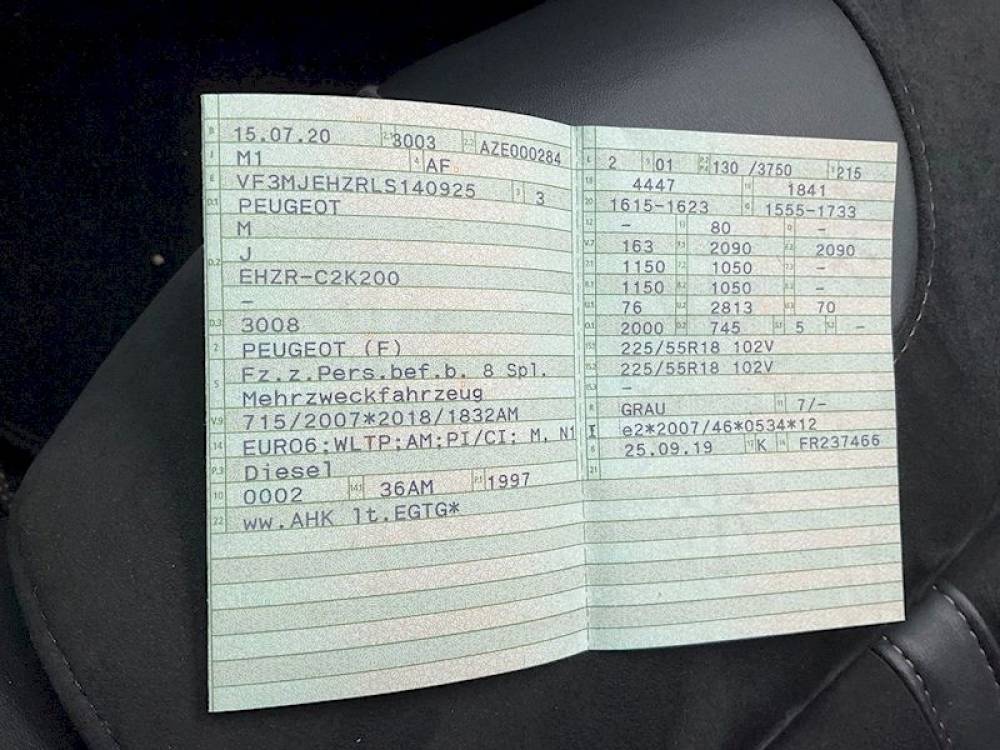 B 15.07.20 2.1 3003 2.2 AZE000284
J M1 4 AF
E VF3MJEHZRLS140925 3 3
D.1 PEUGEOT
M
D.2 J
EHZR-C2K200
–
D.3 3008
2 PEUGEOT (F)
5 Fz.z.Pers.bef.b. 8 Spl.
Mehrzweckfahrzeug
V.9 715/2007*2018/1832AM
14 EURO6;WLTP;AM;PI/CI; M, N1
P.3 Diesel
10 0002 14.1 36AM P.1 1997
22 ww.AHK lt.EGTG*
L 2 9 01 P.2 P.4 130 /3750 T 215
18 4447 19 1841
20 1615-1623 G 1555-1733
12 – 13 80 Q –
V.7 163 F.1 2090 F.2 2090
7.1 1150 7.2 1050 7.3 –
8.1 1150 8.2 1050 8.3 –
U.1 76 U.2 2813 U.3 70
O.1 2000 O.2 745 S.1 5 S.2 –
15.1 225/55R18 102V
15.2 225/55R18 102V
15.3 –
R GRAU 11 7/-
K e2*2007/46*0534*12
6 25.09.19 17 K 16 FR237466
21